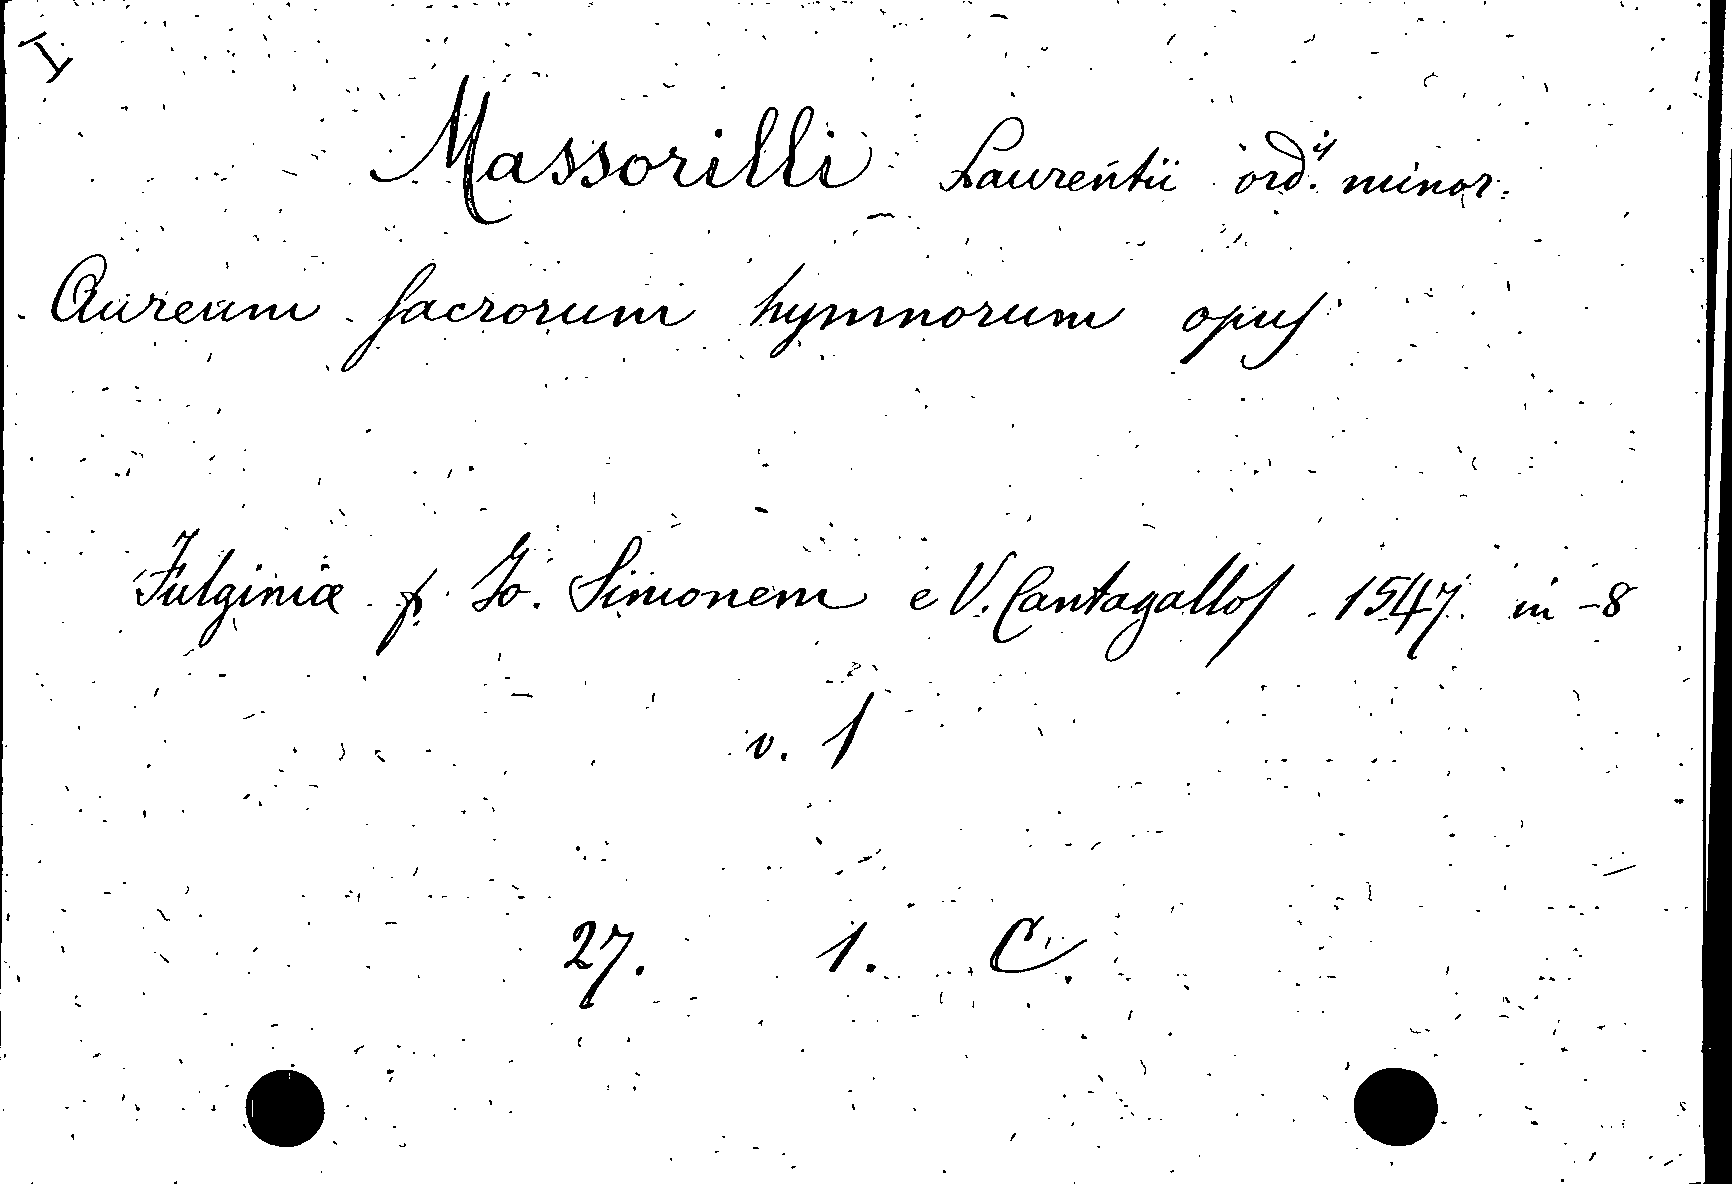 I
Massorilli Laurentii ord.is minor.
Aureum sacrorum hymnorum opus
Fulginiæ p. Io. Simonem e V. Cantagallos 1547 in-8
v. 1
27. 1. C.